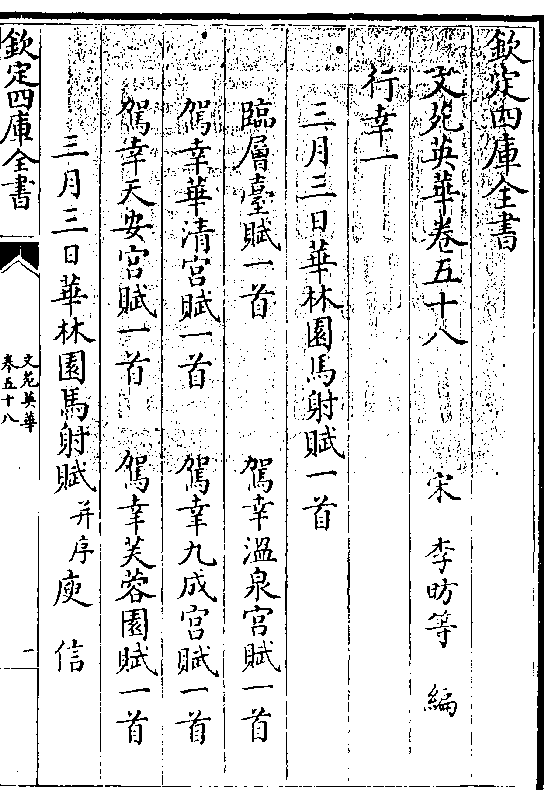 欽定四庫全書
文苑英華卷五十八　宋　李昉等　編
行幸一
三月三日華林園馬射賦一首
臨層臺賦一首　駕幸溫泉宮賦一首
駕幸華清宮賦一首　駕幸九成宮賦一首
駕幸天安宮賦一首　駕幸芙蓉園賦一首
三月三日華林園馬射賦并序　庾　信
欽定四庫全書
文苑英華
卷五十八
一